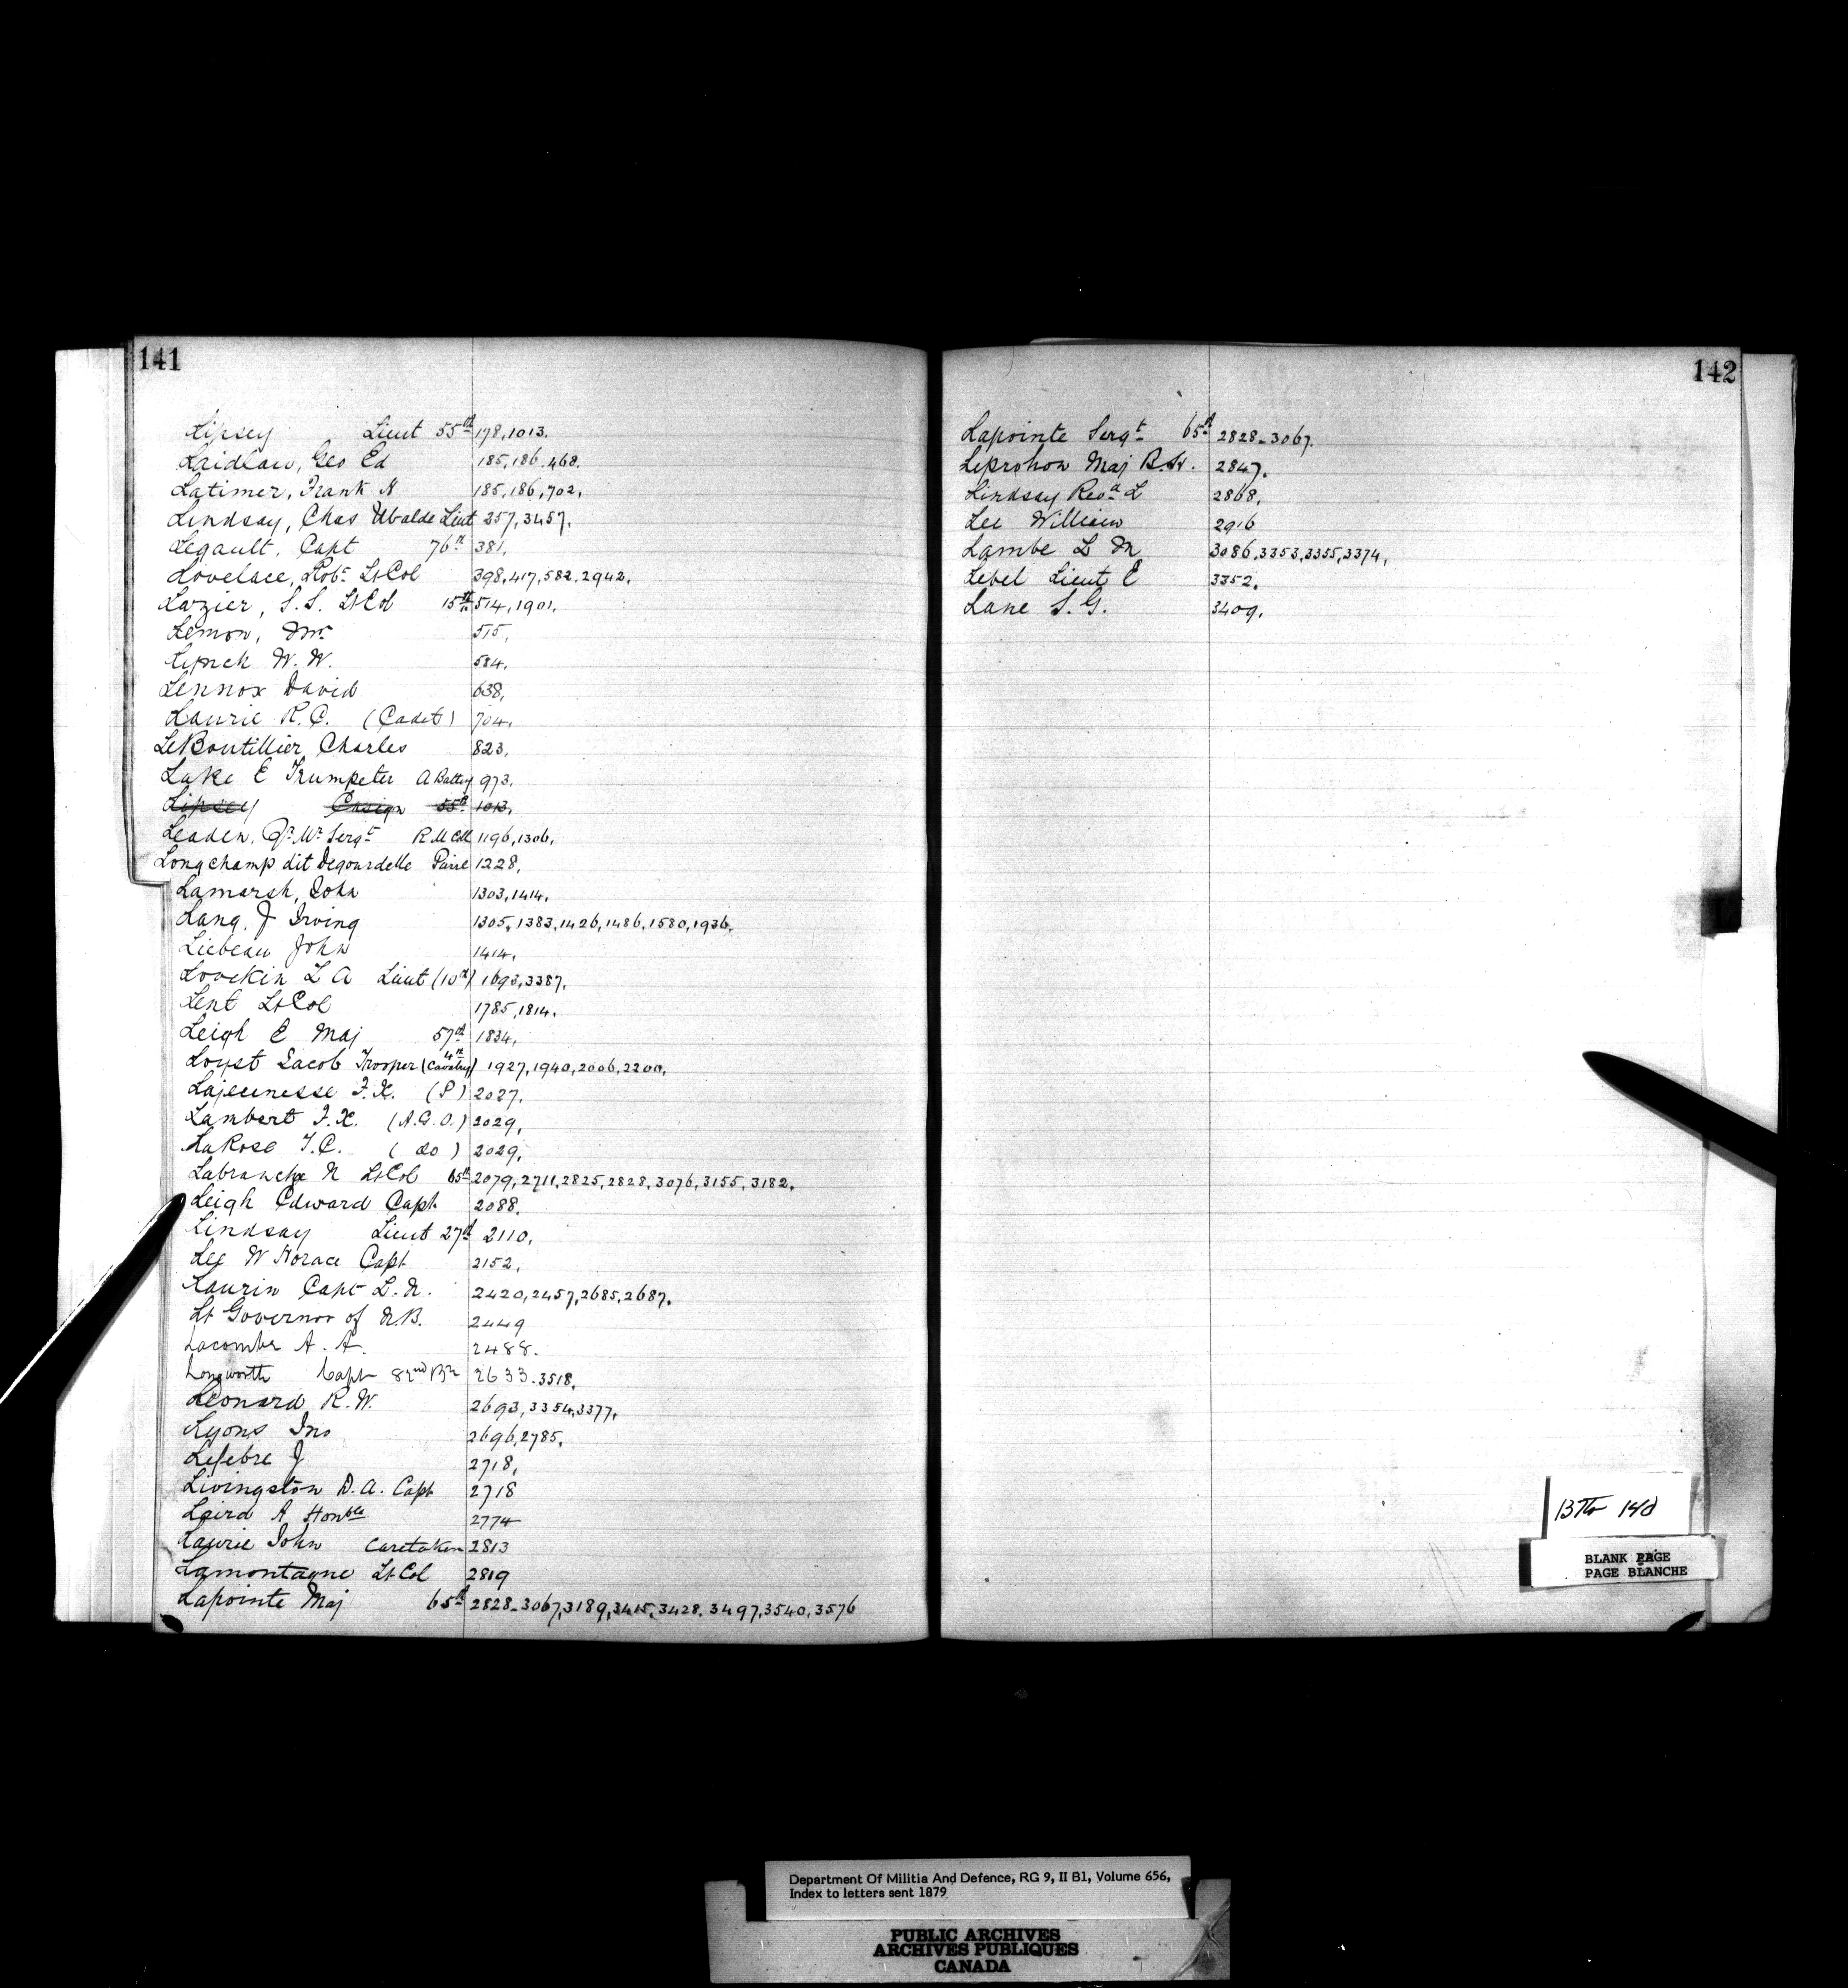 141
Lipsey Lieut 55th 178,1013.
Laidlaw, Geo Ed 185,186,468.
Latimer, Frank H 185,186,702,
Lindsay, Chas Ubalde Lieut 257,3457.
Legault, Capt 76th 381,
Lovelace, Robt Lt Col 398,417,582,2942,
Lazier, S.S. Lt Col 15th 514,1901,
Lemon, Mr. 515,
Lynch W. W. 584,
Lennox David 638,
Laurie R.C. (Cadet) 704,
LeBoutillier, Charles 823,
Lake E Trumpeter A Battery 973,
Lipsey Ensign 55th 1013,
Leaden, Qr. Mr. Sergt R M Coll 1196,1306,
Longchamp dit Degourdelle Pierre 1228,
Lamarsh, John 1303,1414,
Lang, J Irving 1305,1383,1426,1486,1580,1936,
Liebeau John 1414,
Lovekin L A Lieut (10th) 1693,3387,
Lent Lt Col 1785,1814,
Leigh E Maj 57th 1834,
Loyst Jacob Trooper (4th Cavalry) 1927,1940,2006,2200,
Lajeunesse F.X. (P) 2027,
Lambert F.X. (A.G.O.) 2029,
LaRose T.C. ( do ) 2029,
Labranche N Lt Col 65th 2079,2711,2825,2828,3076,3155,3182,
Leigh Edward Capt 2088,
Lindsay Lieut 27th 2110,
Lee W Horace Capt 2152,
Laurin Capt L.N. 2420,2457,2685,2687,
Lt Governor of N.B. 2449
Lacombe A. A. 2488.
Longworth Capt 82nd Bn 2633.3518,
Leonard R.W. 2693,3354,3377,
Lyons Jno 2696,2785,
Lefebre J 2718,
Livingston D.A. Capt 2718
Laird A Honble 2774
Laurie John Caretaker 2813
Lamontagne Lt Col 2819
Lapointe Maj 65th 2828-3067,3189,3415,3428,3497,3540,3576
142
Lapointe Sergt 65th 2828-3067.
Leprohon Maj B.H. 2847.
Lindsay Revd L 2868,
Lee William 2916
Lambe L M 3086,3353,3355,3374,
Lebel Lieut E 3352.
Lane S.G. 3409.
BLANK PAGE
PAGE BLANCHE
Department Of Militia And Defence, RG 9, II B1, Volume 656,
Index to letters sent 1879
PUBLIC ARCHIVES
ARCHIVES PUBLIQUES
CANADA